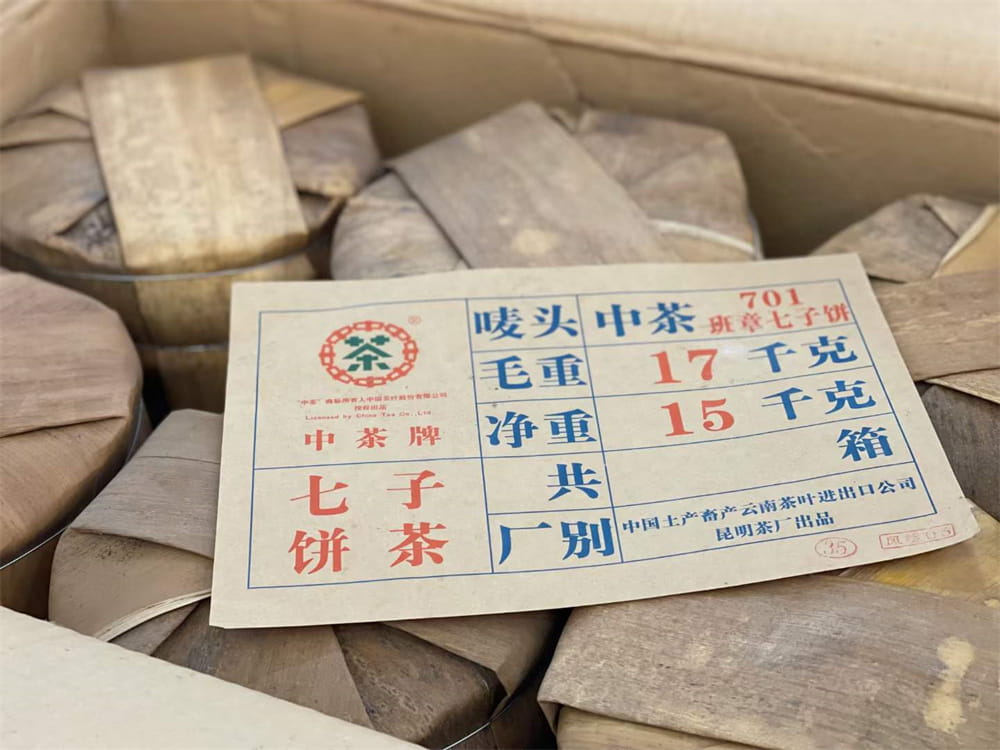 茶
®
"中茶"商标所有人中国茶叶股份有限公司
授权出品
Licensed by China Tea Co.,Ltd.
中茶牌
七子
饼茶
唛头 中茶 701
班章七子饼
毛重 17 千克
净重 15 千克
共 箱
厂别 中国土产畜产云南茶叶进出口公司
昆明茶厂出品
35